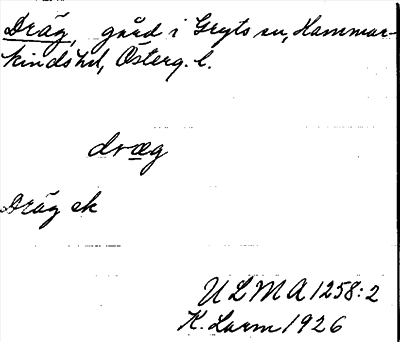 Dräg, gård i Gryts sn, Hammar-
kinds hd, Österg. l.
dræg
Dräg ek
ULMA 1258:2
K. Larm 1926